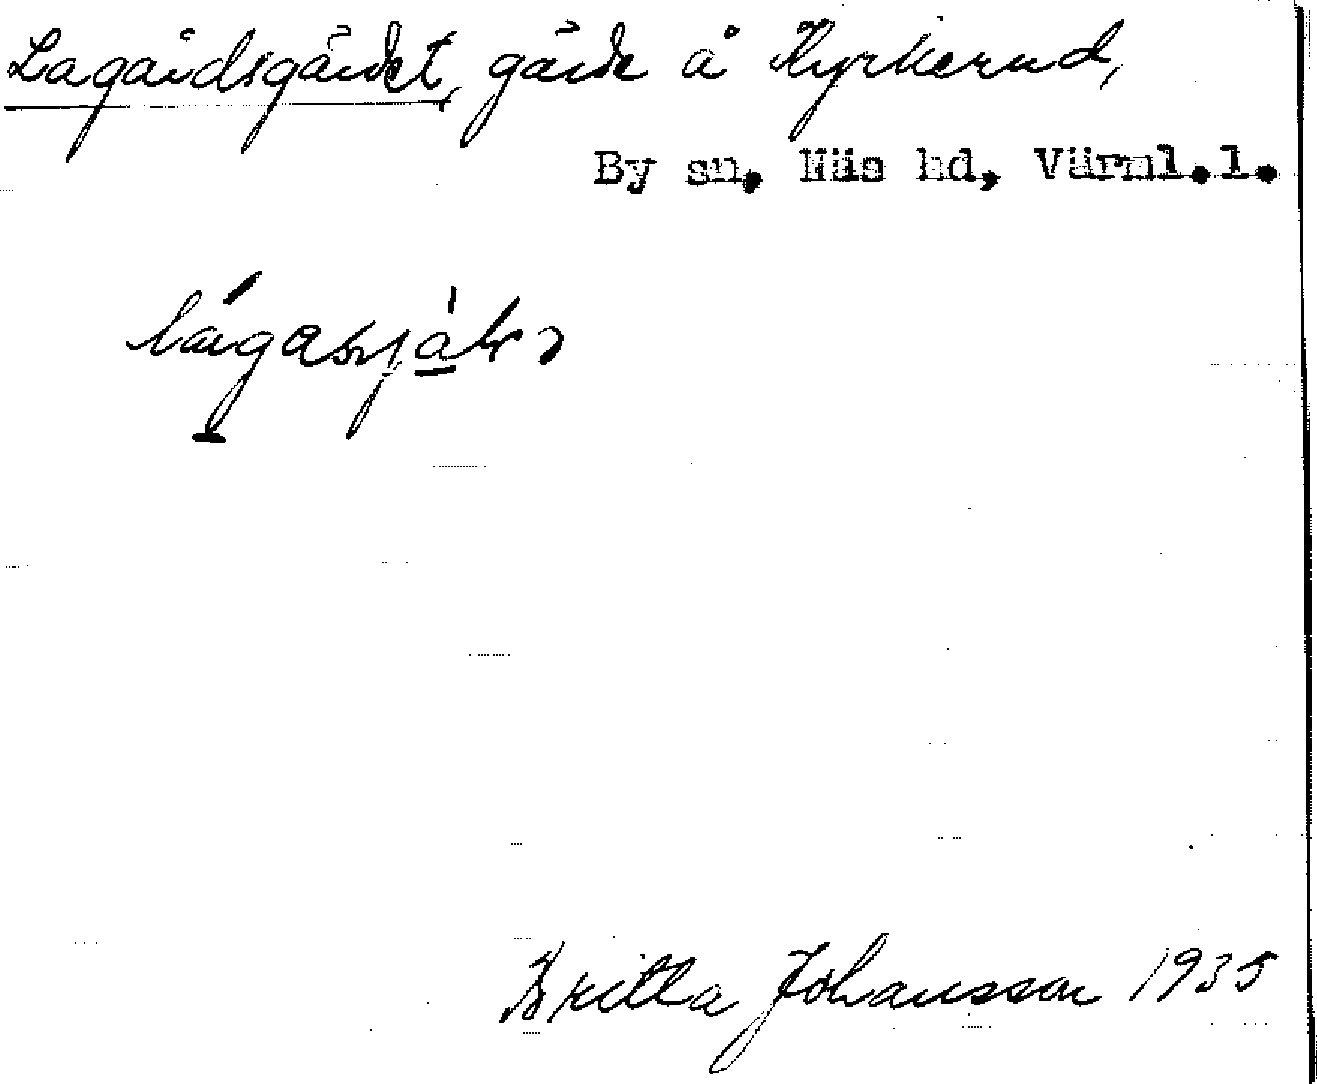 Lagårdsgärdet, gärde å Kyrkerud,
By sn, Näs hd, Värml.l.
Britta Johansson 1935